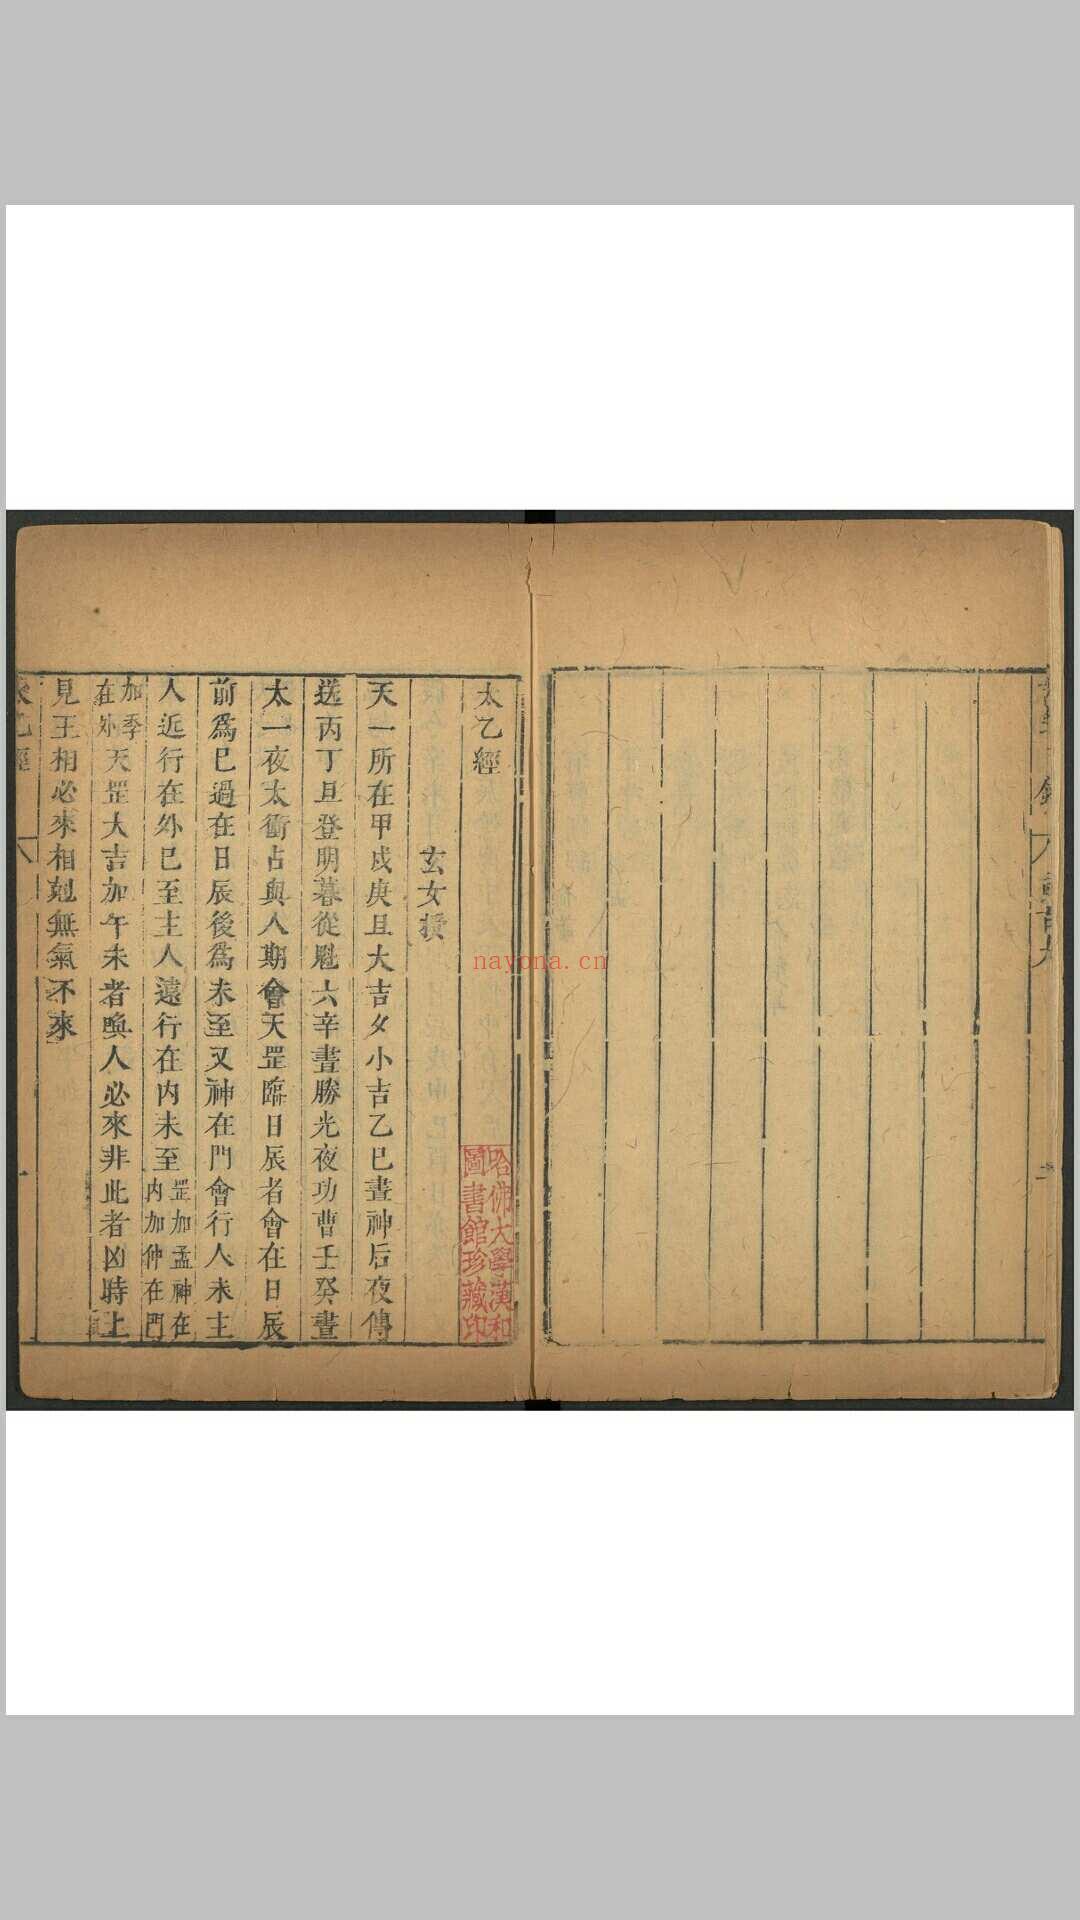 太乙經
玄女授
天一所在甲戍庚旦大吉夕小吉乙巳晝神后夜傳
送丙丁旦登明暮從魁六辛晝勝光夜功曹壬癸晝
太一夜太衝占與人期會天罡臨日辰者會在日辰
前爲巳過在日辰後爲未至又神在門會行人未主
人近行在外巳至主人遠行在内未至罡加孟神在
内加仲在門
加季
在外天罡大吉加午未者喚人必來非此者凶時上
見王相必來相剋無氣不來
太乙經
哈佛大學漢和
圖書館珍藏印
nayona.cn